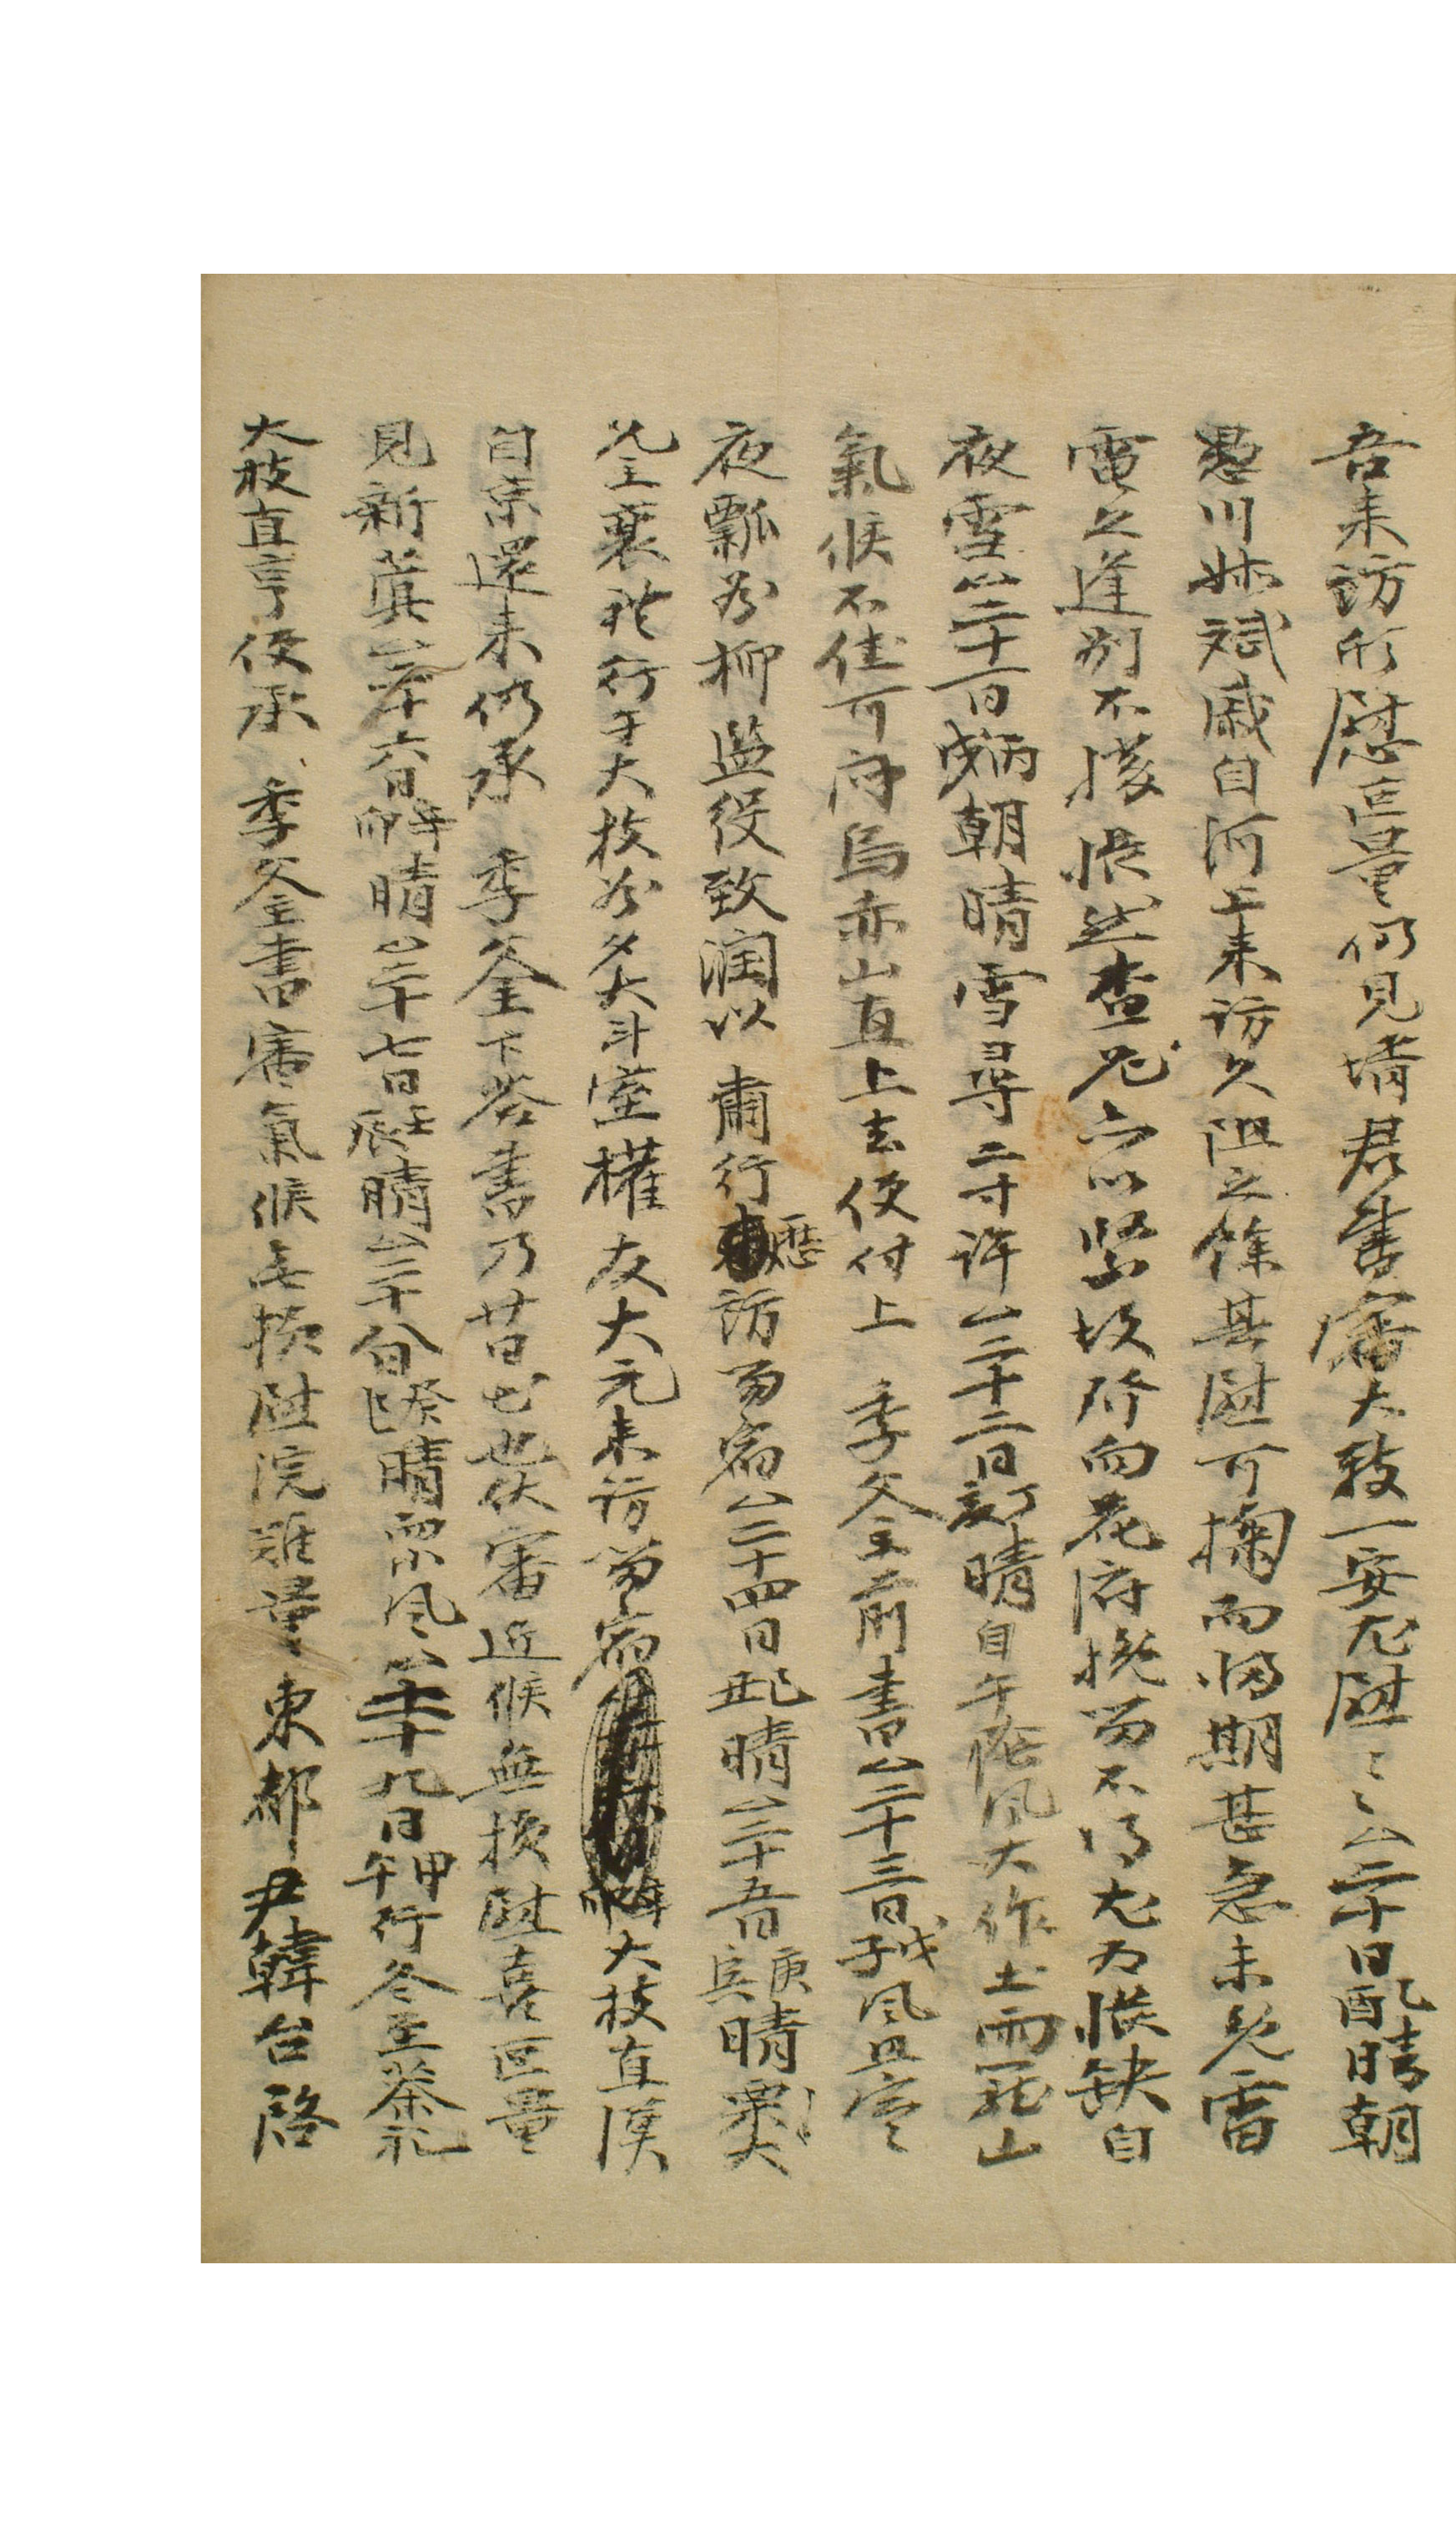 吾來訪形慰叵量仍見壻君書審大致一安尤慰々々△二十日乙酉晴朝
愚川姊斌戚自河上來訪久阻之餘甚慰可掬而歸期甚急未免雷
電之逢別不勝悵然查兄亦以緊故所向花府挽留不得尤为悵缺自
夜雪△二十一日丙戌朝晴雪尋二寸許△二十二日丁亥晴自午後風大作土雨罷山
氣候不佳可悶烏赤山直上去便付上 季父主前書△二十三日戊子風且寒
夜瓢於柳監役致潤以 肅行歷訪留宿△二十四日己丑晴△二十五日庚寅晴粟大
兄主襄礼行于大枝於夕大斗室權友大元來訪留宿辛卯大枝直漢
自京還來仍承 季父主下答書乃廿日出也伏審近候無損慰喜叵量
見新蓂△二十六日辛卯晴△二十七日壬辰晴△二十八日癸巳晴而小風△二十九日甲午行冬至茶礼
大枝直亨便承 季父主書審氣候無損慰浣難量東都尹韓台啓